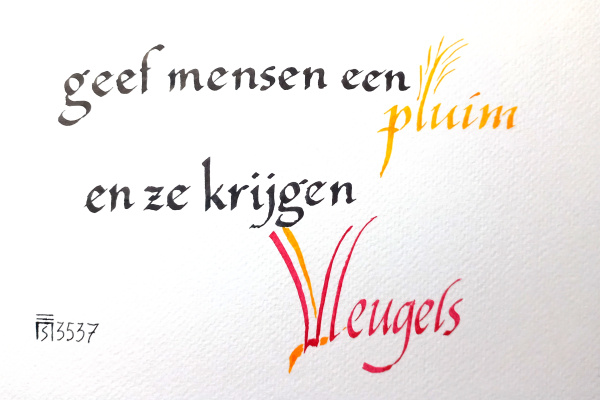 geef mensen een
pluim
en ze krijgen
Vleugels
3537